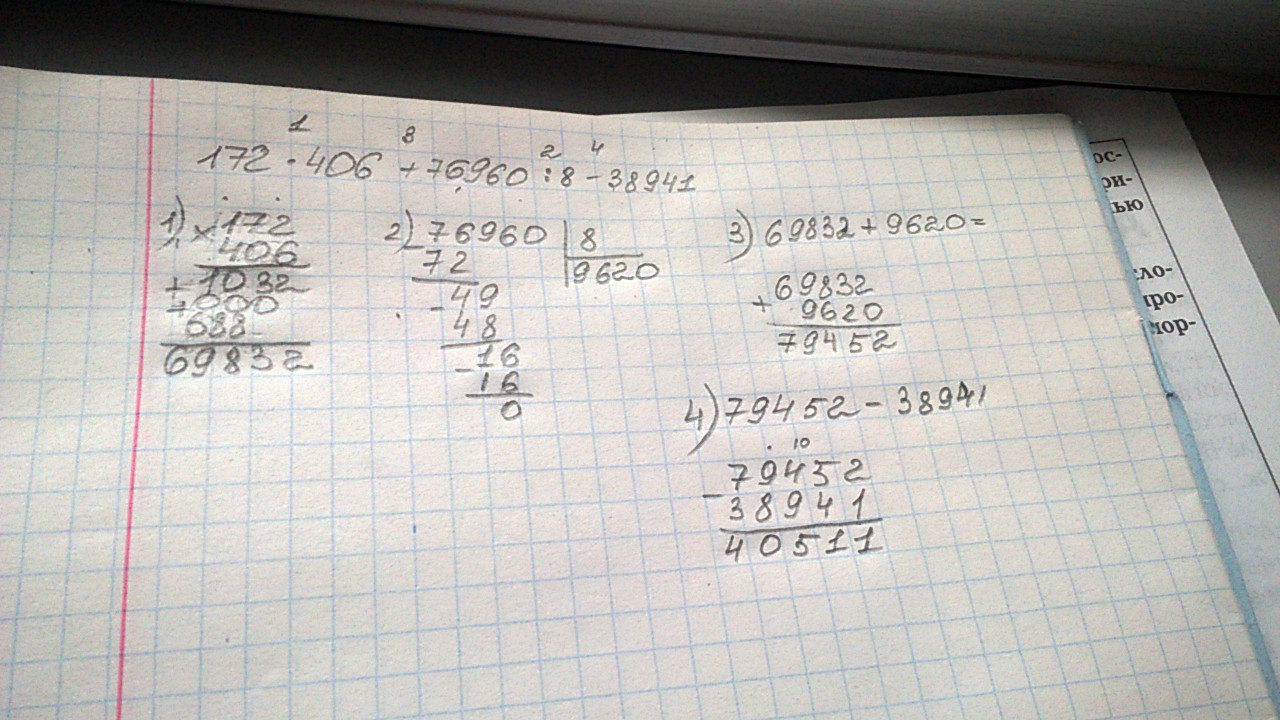 1 3 2 4
172 · 406 + 76960 : 8 - 38941
1) × 172
406
+ 1032
+ 000
688
69832
2) - 76960 | 8
72 | 9620
- 49
48
- 16
16
0
3) 69832 + 9620 =
+ 69832
9620
79452
4) 79452 - 38941
. 10
- 79452
38941
40511
ос-
ри-
ью
ло-
про-
мор-